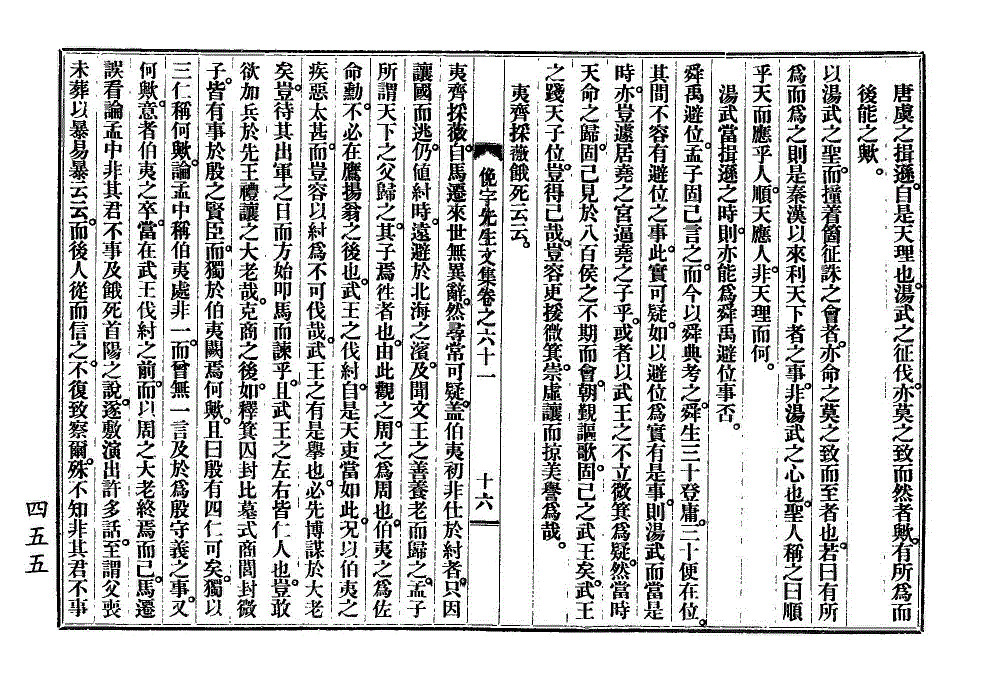 唐虞之揖遜。自是天理也。湯武之征伐。亦莫之致而然者歟。有所爲而
後能之歟。
以湯武之聖。而撞着箇征誅之會者。亦命之莫之致而至者也。若曰有所
爲而爲之。則是秦漢以來利天下者之事。非湯武之心也。聖人稱之曰順
乎天而應乎人。順天應人。非天理而何。
湯武當揖遜之時。則亦能爲舜禹避位事否。
舜禹避位。孟子固已言之。而今以舜典考之。舜生三十登庸。三十便在位。
其間不容有避位之事。此實可疑。如以避位爲實有是事。則湯武而當是
時。亦豈遽居堯之宮逼堯之子乎。或者以武王之不立微箕爲疑。然當時
天命之歸。固已見於八百侯之不期而會。朝覲謳歌。固已之武王矣。武王
之踐天子位。豈得已哉。豈容更援微箕。崇虛讓而掠美譽爲哉。
夷齊採薇餓死云云。
俛宇先生文集卷之六十一
十六
夷齊採薇。自馬遷來世無異辭。然尋常可疑。蓋伯夷初非仕於紂者。只因
讓國而逃。仍値紂時。遠避於北海之濱。及聞文王之善養老而歸之。孟子
所謂天下之父歸之。其子焉往者也。由此觀之。周之爲周也。伯夷之爲佐
命勳。不必在鷹揚翁之後也。武王之伐紂。自是天吏當如此。况以伯夷之
疾惡太甚。而豈容以紂爲不可伐哉。武王之有是擧也。必先博謀於大老
矣。豈待其出軍之日而方始叩馬而諫乎。且武王之左右皆仁人也。豈敢
欲加兵於先王禮讓之大老哉。克商之後。如釋箕囚封比墓式商閭封微
子。皆有事於殷之賢臣。而獨於伯夷闕焉何歟。且曰殷有四仁可矣。獨以
三仁稱何歟。論孟中稱伯夷處非一。而曾無一言及於爲殷守義之事。又
何歟。意者伯夷之卒。當在武王伐紂之前。而以周之大老終焉而已。馬遷
誤看論孟中非其君不事及餓死首陽之說。遂敷演出許多話。至謂父喪
未葬以暴易暴云云。而後人從而信之。不復致察爾。殊不知非其君不事
四五五